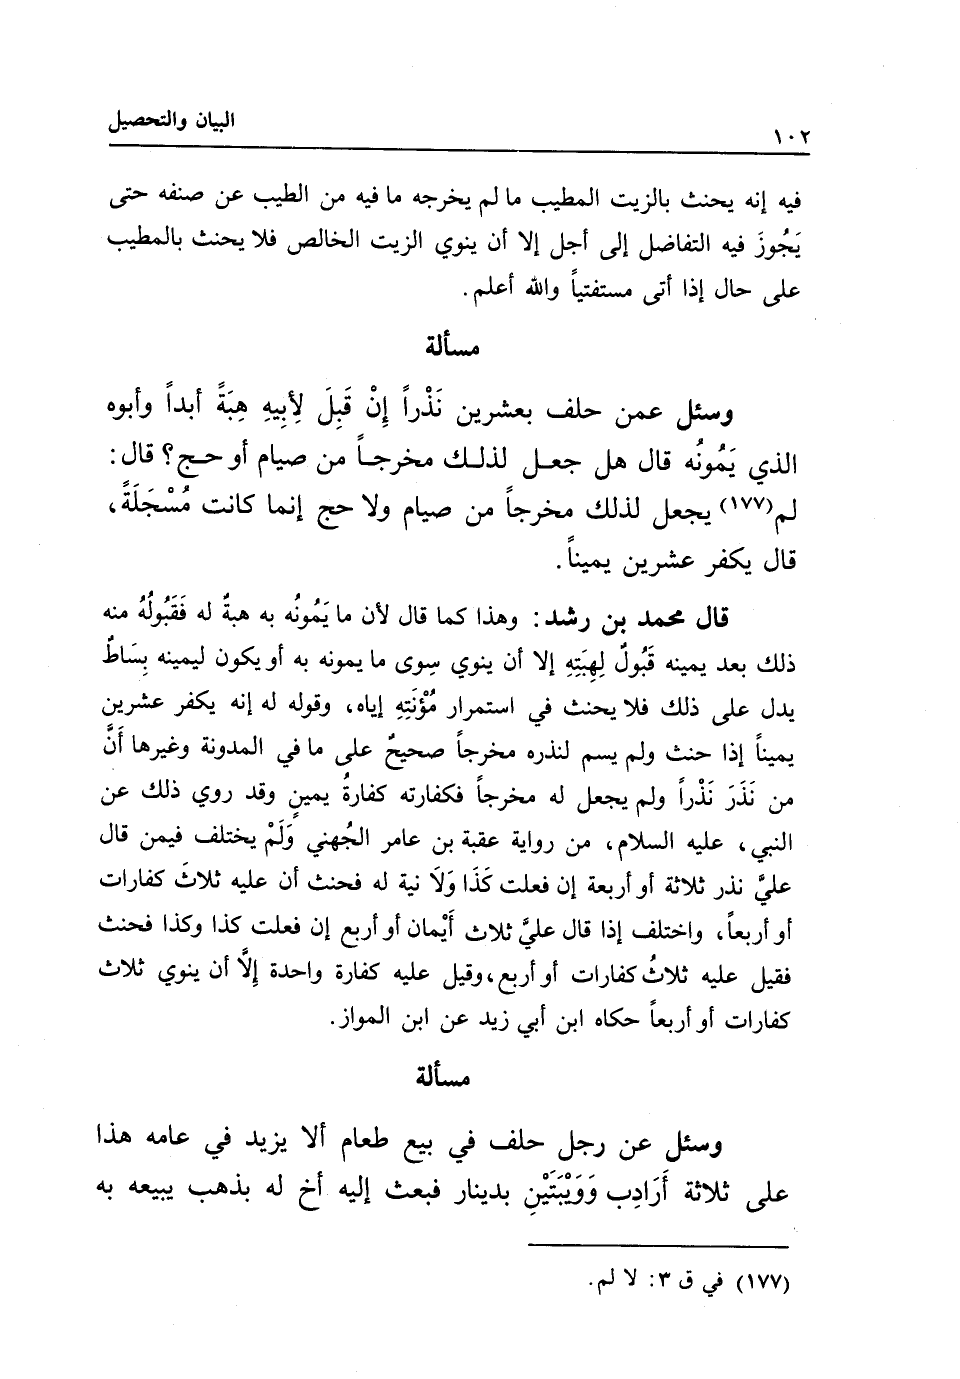 ١٠٢ البيان والتحصيل
فيه إنه يحنث بالزيت المطيب ما لم يخرجه ما فيه من الطيب عن صنفه حتى
يَجُوزَ فيه التفاضل إلى أجل إلا أن ينوي الزيت الخالص فلا يحنث بالمطيب
على حال إذا أتى مستفتياً والله أعلم.
مسألة
وسئل عمن حلف بعشرين نَذْراً إِنْ قَبِلَ لِأَبِيهِ هِبَةً أبداً وأبوه
الذي يَمُونُه قال هل جعل لذلك مخرجاً من صيام أو حج؟ قال:
لم(١٧٧) يجعل لذلك مخرجاً من صيام ولا حج إنما كانت مُسْجَلَةً،
قال يكفر عشرين يميناً.
قال محمد بن رشد: وهذا كما قال لأن ما يَمُونُه به هبةٌ له فَقَبُولُهُ منه
ذلك بعد يمينه قَبُولٌ لِهِبَتِهِ إلا أن ينوي سِوى ما يمونه به أو يكون ليمينه بِسَاطٌ
يدل على ذلك فلا يحنث في استمرار مُؤْنَتِهِ إياه، وقوله له إنه يكفر عشرين
يميناً إذا حنث ولم يسم لنذره مخرجاً صحيحٌ على ما في المدونة وغيرها أَنَّ
من نَذَرَ نَذْراً ولم يجعل له مخرجاً فكفارته كفارةُ يمينٍ وقد روي ذلك عن
النبي، عليه السلام، من رواية عقبة بن عامر الجُهني وَلَمْ يختلف فيمن قال
عليَّ نذر ثلاثة أو أربعة إن فعلت كَذَا وَلَا نية له فحنث أن عليه ثلاثَ كفارات
أو أربعاً، واختلف إذا قال عليَّ ثلاث أَيْمان أو أربع إن فعلت كذا وكذا فحنث
فقيل عليه ثلاثُ كفارات أو أربع، وقيل عليه كفارة واحدة إِلَّا أن ينوي ثلاث
كفارات أو أربعاً حكاه ابن أبي زيد عن ابن المواز.
مسألة
وسئل عن رجل حلف في بيع طعام ألا يزيد في عامه هذا
على ثلاثة أَرَادِب وَوَيْبَتَيْنِ بدينار فبعث إليه أخ له بذهب يبيعه به
(١٧٧) في ق ٣: لا لم.